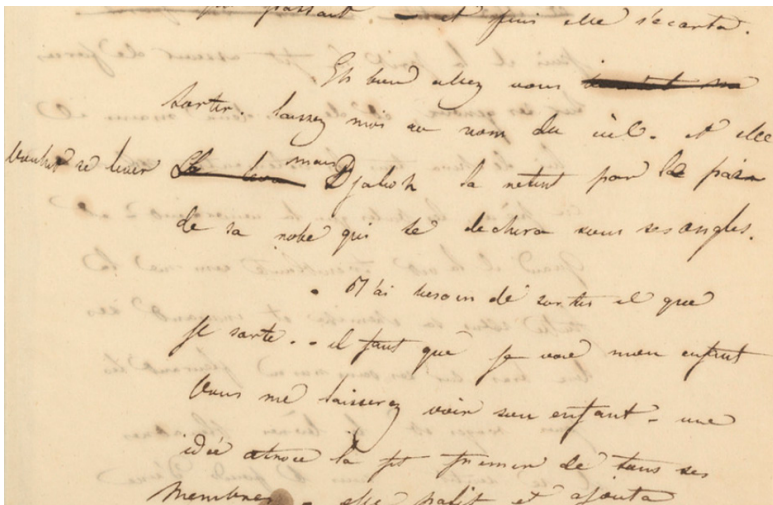 passant. – et puis elle s'ecarta.
Eh bien allez vous
sortir. laissez moi au nom du ciel. et elle
voulut se lever mais Djalioh la retint par le pan
de sa robe qui se dechira sous ses ongles.
. J'ai besoin de sortir il faut que
je sorte. . il faut que je voie mon enfant
Vous me laisserez voir mon enfant. une
idée atroce la fit fremir de tous ses
membres. elle palit et ajouta